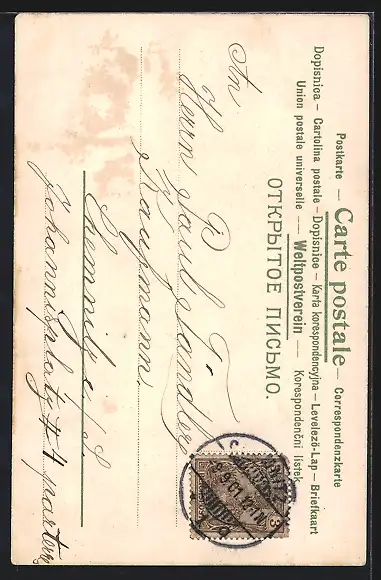 Postkarte — Carte postale — Correspondenzkarte
Dopisnica – Cartolina postale – Dopisnice – Karta korespondencyjna – Levelező-Lap – Briefkaart
Union postale universelle — Weltpostverein — Korespondenčni listek
ОТКРЫТОЕ ПИСЬМО.
An
Herrn Paul
Kaufmann.
Chemnitz i/S
Johannisplatz # 4
3